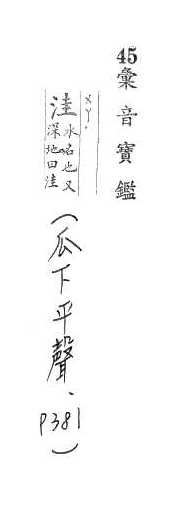 45彙音寶鑑
ㄨㄚˊ
洼水名也又
深地曰洼
(瓜下平聲、P381)